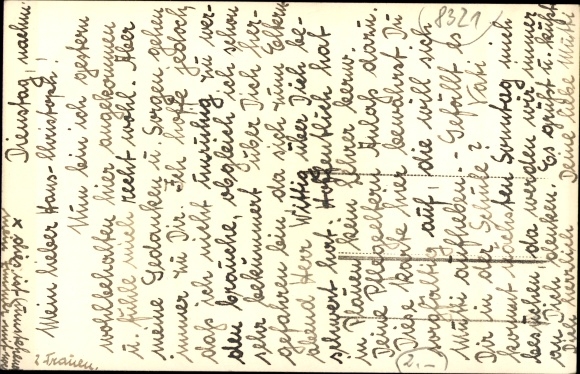 Dienstag, nachm.
Mein lieber Hans-Christoph!
Nun bin ich gestern
wohlbehalten hier angekommen
u. fühle mich recht wohl. Aber
meine Gedanken u. Sorgen gehen
immer zu Dir. Ich hoffe jedoch,
daß ich nicht unruhig zu wer-
den brauche, obgleich ich schon
sehr bekümmert über Dich her-
gefahren bin, da sich zum Eltern
abend Herr Wittig über Dich be-
schwert hat. Hoffentlich hat
in Plauen kein Lehrer
Deine Pflegeeltern Anlaß dazu.
Diese Karte hier bewahrst Du
sorgfältig auf - die will sich
Mutti aufheben. - Gefällt es
Dir in der Schule? Vati
kommt nächsten Sonntag mich
besuchen, da werden wir immer
an Dich denken. Es grüßt u. küßt
Dich herzlich Deine liebe Mutti
x dies ist
mein
2 Frauen.
(8321)
(2.-)